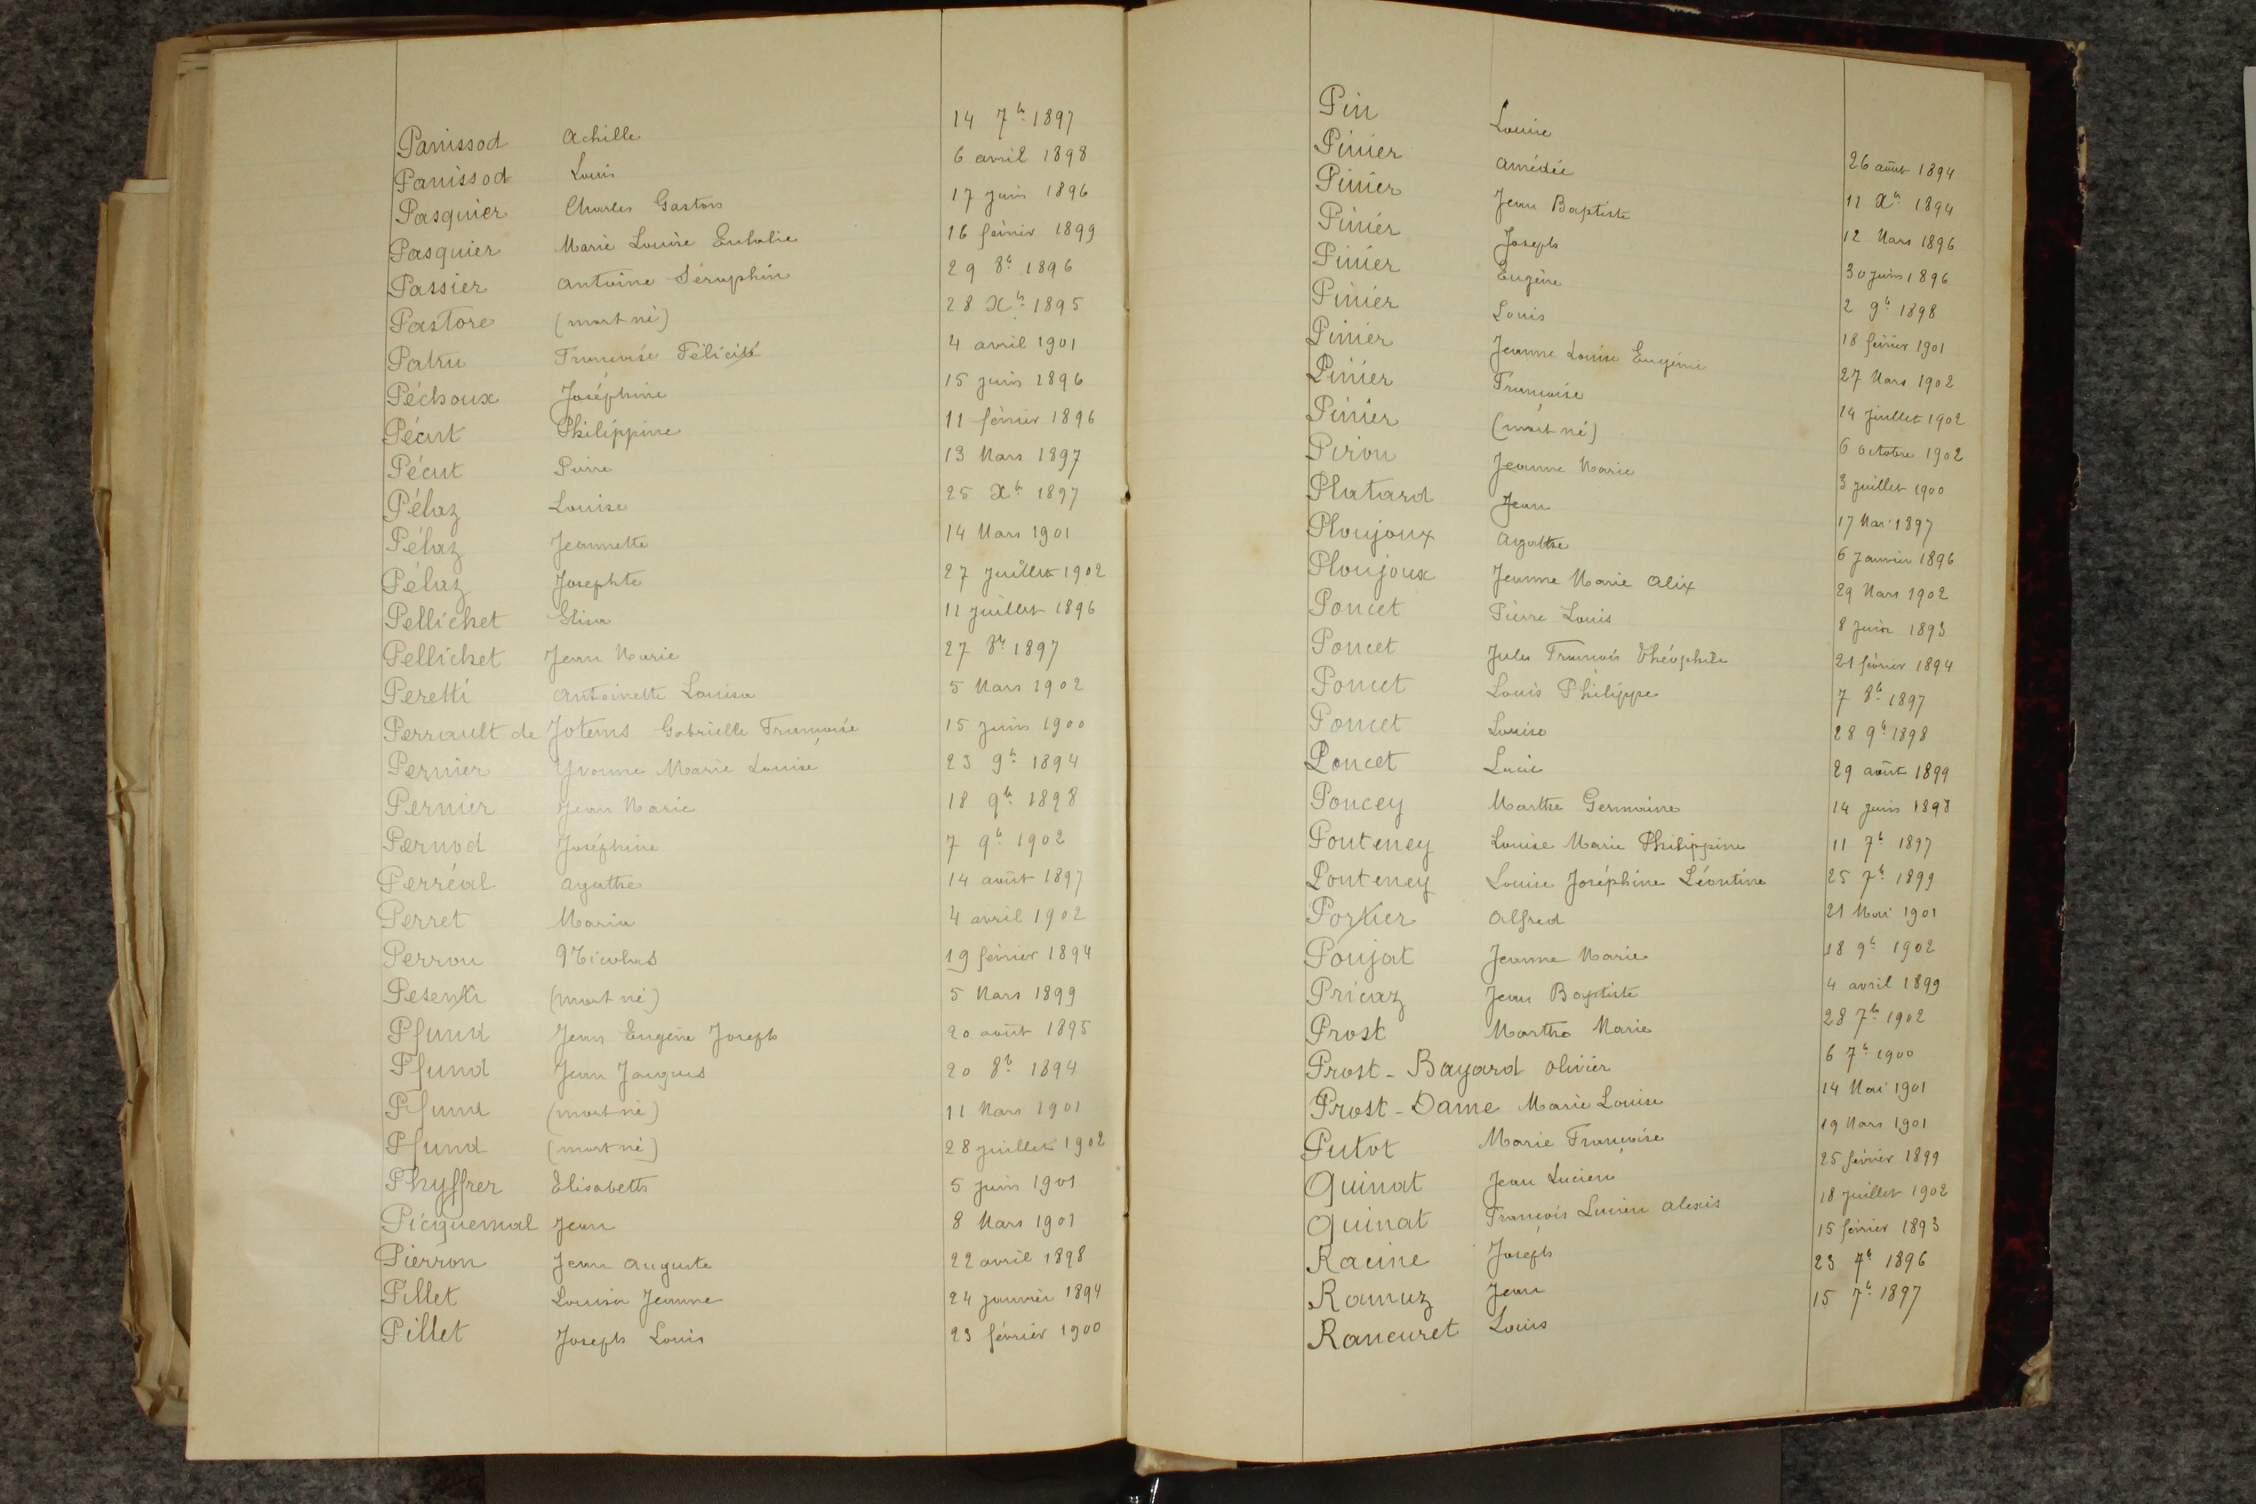 Panissod Achille 14 7b 1897
Panissod Louis 6 avril 1898
Pasquier Charles Gaston 17 juin 1896
Pasquier Marie Louise Eulalie 16 février 1899
Passier Antoine Séraphin 29 8b 1896
Pastore (mort né) 28 Xb 1895
Patru Françoise Félicité 4 avril 1901
Péchoux Joséphine 15 juin 1896
Pécut Philippine 11 février 1896
Pécut Pierre 13 Mars 1897
Pélaz Louise 25 Xb 1897
Pélaz Jeannette 14 Mars 1901
Pélaz Josephte 27 juillet 1902
Pellichet Elisa 11 juillet 1896
Pellichet Jean Marie 27 8b 1897
Peretti Antoinette Louisa 5 Mars 1902
Perrault de Jotems Gabrielle Françoise 15 juin 1900
Pernier Yvonne Marie Louise 23 9b 1894
Pernier Jean Marie 18 9b 1898
Pernod Joséphine 7 9b 1902
Perréal Agathe 14 août 1897
Perret Maria 4 avril 1902
Perrou Nicolas 19 février 1894
Pesenti (mort né) 5 Mars 1899
Pfund Jean Eugène Joseph 20 août 1895
Pfund Jean Jacques 20 8b 1894
Pfund (mort né) 11 Mars 1901
Pfund (mort né) 28 juillet 1902
Phyffrer Elisabeth 5 juin 1901
Picquemal Jean 8 Mars 1901
Pierron Jean Auguste 22 avril 1898
Pillet Louisa Jeanne 24 janvier 1894
Pillet Joseph Louis 23 février 1900
Pin Louise 26 août 1894
Pinier Amédée 11 Xb 1894
Pinier Jean Baptiste 12 Mars 1896
Pinier Joseph 30 juin 1896
Pinier Eugène 2 9b 1898
Pinier Louis 18 février 1901
Pinier Jeanne Louise Eugénie 27 Mars 1902
Pinier Françoise 14 juillet 1902
Pinier (mort né) 6 octobre 1902
Piron Jeanne Marie 3 juillet 1900
Plutard Jean 17 Mai 1897
Ploujoux Agathe 6 janvier 1896
Ploujoux Jeanne Marie Alix 29 Mars 1902
Poncet Pierre Louis 8 juin 1893
Poncet Jules François Théophile 21 février 1894
Poncet Louis Philippe 7 8b 1897
Poncet Louise 28 9b 1898
Poncet Lucie 29 août 1899
Poncey Marthe Germaine 14 juin 1898
Ponteney Louise Marie Philippine 11 7b 1897
Ponteney Louise Joséphine Léontine 25 7b 1899
Portier Alfred 21 Mai 1901
Poujat Jeanne Marie 18 9b 1902
Pricaz Jean Baptiste 4 avril 1899
Prost Martha Marie 28 7b 1902
Prost-Bayard Olivier 6 7b 1900
Prost-Dame Marie Louise 14 Mai 1901
Putot Marie Françoise 19 Mars 1901
Quinat Jean Lucien 25 février 1899
Quinat François Lucien Alexis 18 juillet 1902
Racine Joseph 15 février 1893
Ramuz Jean 23 7b 1896
Rancuret Louis 15 7b 1897